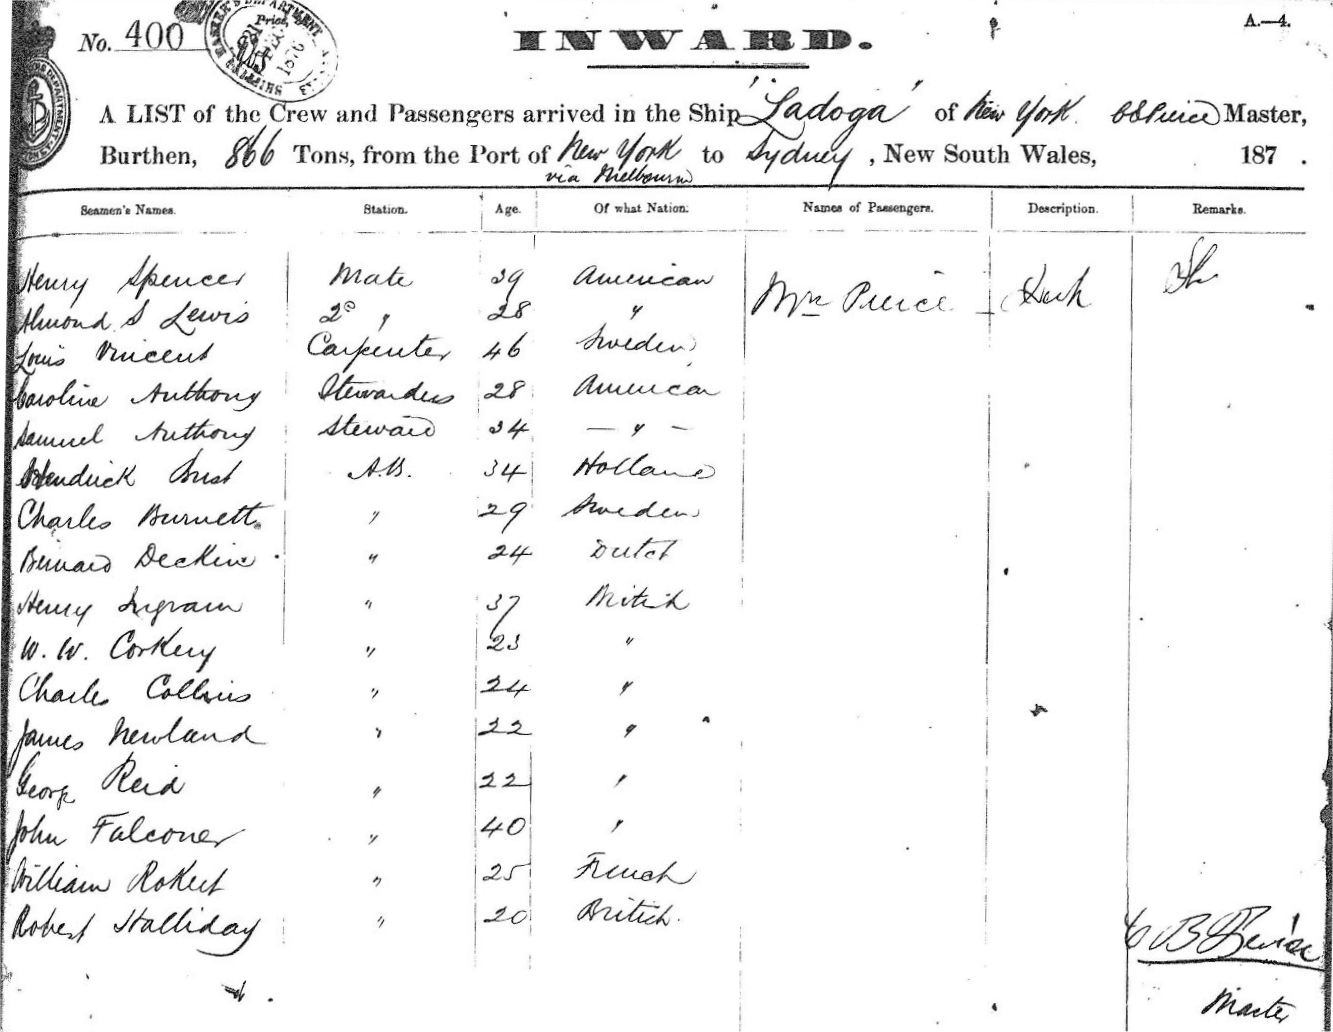 No. 400
A.—4.
INWARD.
A LIST of the Crew and Passengers arrived in the Ship "Ladoga" of New York. Master,
Burthen, 866 Tons, from the Port of New York to Sydney, New South Wales, 187 .
via Melbourne
Seamen's Names. Station. Age. Of what Nation. Names of Passengers. Description. Remarks.
Henry Spencer Mate 39 American
Mrs Pierce
Almond S Lewis 2° " 28 "
Louis Vincent Carpenter 46 Sweden
Caroline Anthony Stewardess 28 American
Samuel Anthony Steward 34 — " —
Hendrick A.B. 34 Holland
Charles Burnett " 29 Sweden
Bernard Deckin " 24 Dutch
Henry Ingram " 37 British
W. W. Corkery " 23 "
Charles Collins " 24 "
James Newland " 22 "
George Reid " 22 "
John Falconer " 40 "
William Rokert " 25 French
Robert Halliday " 20 British.
Master